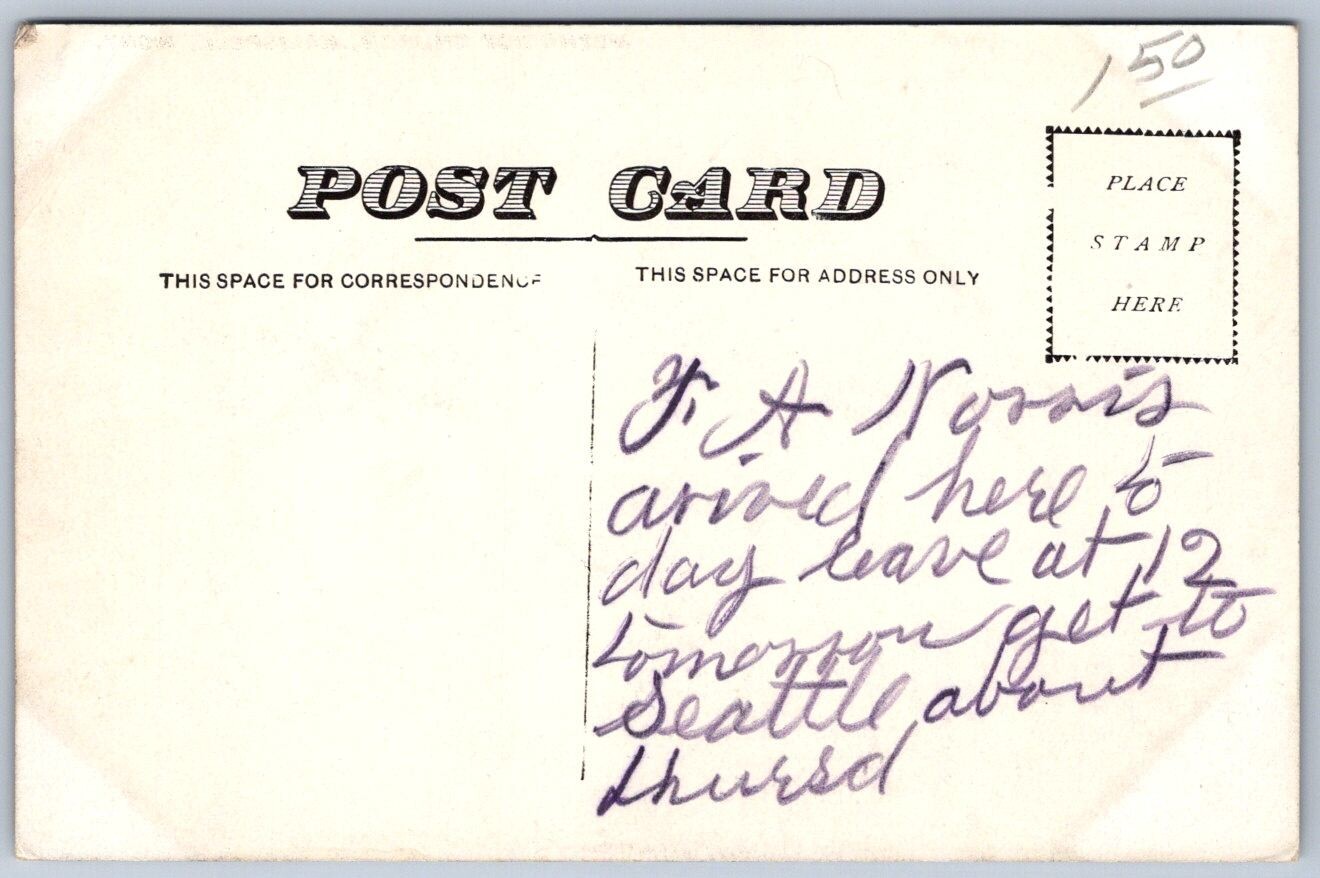 150
POST CARD
PLACE
STAMP
HERE
THIS SPACE FOR CORRESPONDENCE
THIS SPACE FOR ADDRESS ONLY
F. A Norris
arived here to
day leave at 12
tomorrow get to
Seattle about
thursd